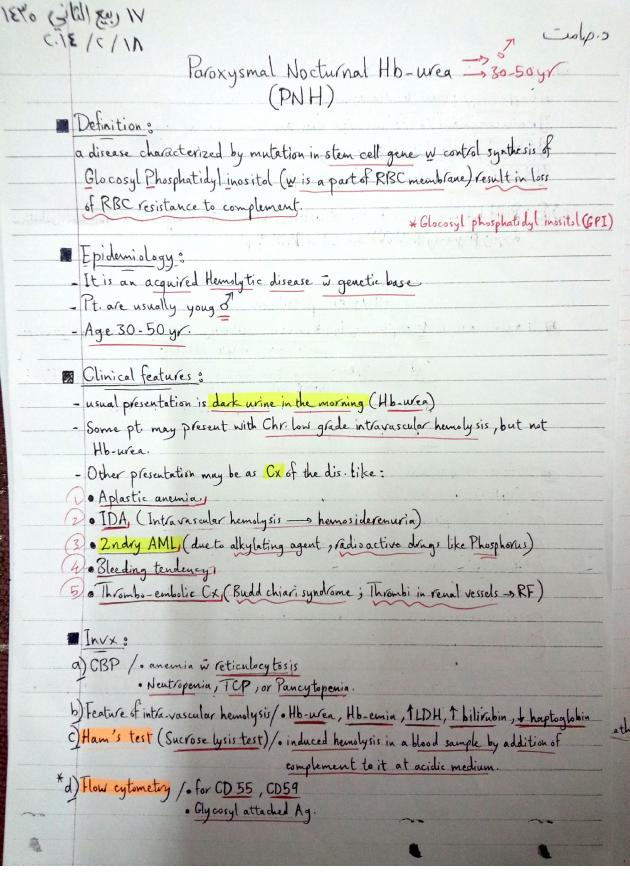 ١٧ ربيع الثاني ١٤٣٥
٢٠١٤ / ٢ / ١٨
د. صامت
Paroxysmal Nocturnal Hb-urea → ♂
→ 30-50yr
(PNH)
Definition :
a disease characterized by mutation in stem cell gene w control synthesis of
Glocosyl Phosphatidyl inositol (w is a part of RBC membrane) result in loss
of RBC resistance to complement.
* Glocosyl phosphatidyl inositol (GPI)
Epidemiology :
- It is an acquired Hemolytic disease w̄ genetic base
- Pt. are usually youg ♂
- Age 30-50 yr.
Clinical features :
- usual presentation is dark urine in the morning (Hb-urea)
- Some pt. may present with Chr. low grade intravascular hemolysis, but not
Hb-urea.
- Other presentation may be as Cx of the dis. like :
1 • Aplastic anemia,
2 • IDA, (Intravascular hemolysis → hemosiderenuria)
3 • 2ndry AML, (due to alkylating agent, radioactive drugs like Phosphorus)
4 • Bleeding tendency,
5 • Thrombo-embolic Cx, (Budd chiari syndrome ; Thrombi in renal vessels → RF)
Invx :
a) CBP / • anemia w̄ reticulocytosis
• Neutropenia, TCP, or Pancytopenia.
b) Feature of intra-vascular hemolysis / • Hb-urea, Hb-emia, ↑LDH, ↑ bilirubin, ↓ haptoglobin
c) Ham's test (Sucrose lysis test) / • induced hemolysis in a blood sample by addition of
complement to it at acidic medium.
* d) Flow cytometry / • for CD 55, CD59
• Glycosyl attached Ag.